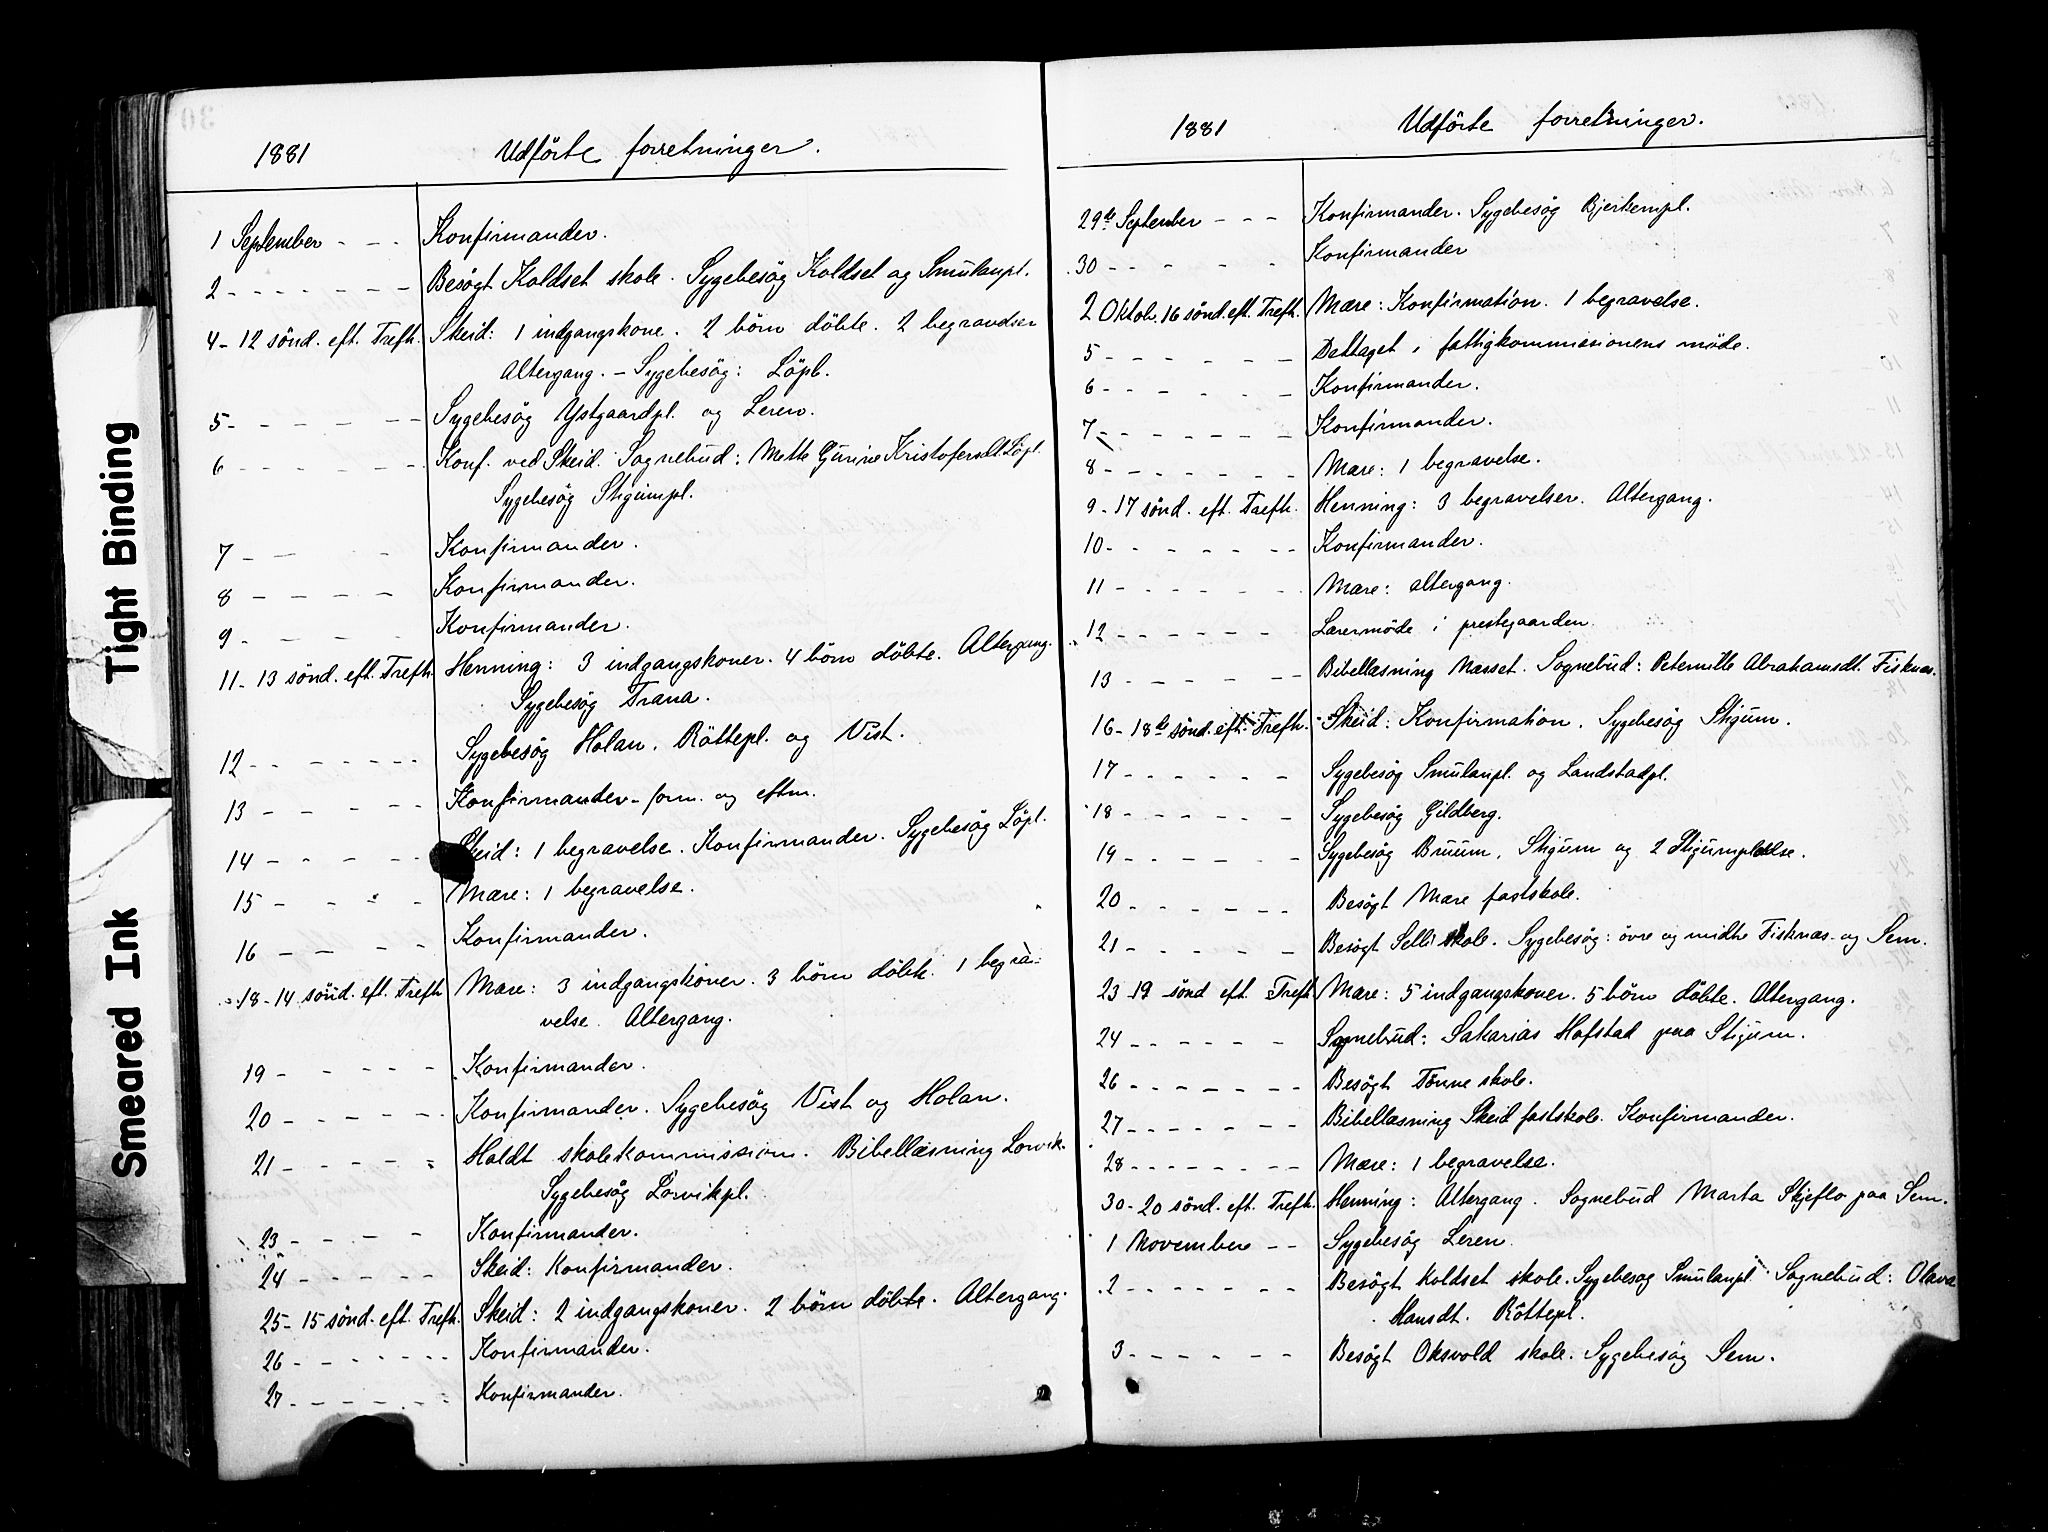 Tight Binding
Smeared Ink
1881 Udförte forretninger.
1 September - - - Konfirmander.
2 - - - - - - - Besögt Koldset skole. Sygebesög Koldset og Smulanpl.
4 - 12 sönd. eft. Trefh. Skeid: 1 indgangskone. 2 börn döbte. 2 begravelser
Altergang. - Sygebesög: Löpl.
5 - - - - - - Sygebesög Ystgaardpl. og Leren.
6 - - - - - - - Konf. ved Skeid. Sognebud: Mette Gurine Kristofersdt. Löpl.
Sygebesög Stigumpl.
7 - - - Konfirmander.
8 - - - - - Konfirmander.
9 - - - - Konfirmander.
11 - 13 sönd. eft. Trefh. Henning: 3 indgangskoner. 4 börn döbte. Altergang.
Sygebesög Trana.
12 - - - - - - - Sygebesög Holan. Röttepl. og Vist.
13 - - - - - Konfirmander - form. og eftm.
14 - - - - - Skeid: 1 begravelse. Konfirmander. Sygebesög Löpl.
15 - - - - Mære: 1 begravelse.
16 - - - - Konfirmander.
18 - 14 sönd. eft. Trefh. Mære: 3 indgangskoner. 3 börn döbte. 1 begra-
velse. Altergang.
19 - - - - - Konfirmander.
20 - - - - - - Konfirmander. Sygebesög Vist og Holan.
21 - - - - - - Holdt skolekommission. Bibellæsning Lorvik.
Sygebesög Lorvikpl.
23 - - - - Konfirmander.
24 - - - - - Skeid: Konfirmander.
25 - 15 sönd. eft. Trefh. Skeid: 2 indgangskoner. 2 börn döbte. Altergang.
26 - - - - - - - Konfirmander.
27 - - - - - - - Konfirmander.
1881 Udförte forretninger.
29de September - - - Konfirmander. Sygebesög Bjerkempl.
30 - - - - - - Konfirmander
2 Oktob. 16 sönd. eft. Trefh. Mære: Konfirmation. 1 begravelse.
5 - - - - - - Deltaget i fattigkommissionens möde.
6 - - - - - - Konfirmander.
7 - - - - - - - Konfirmander.
8 - - - - - - Mære: 1 begravelse.
9 - 17 sönd. eft. Trefh. Henning: 3 begravelser. Altergang.
10 - - - - - - - Konfirmander.
11 - - - - - - Mære: altergang.
12 - - - - - - Lærermöde i prestegaarden.
13 - - - - - - - Bibellæsning Næsset. Sognebud: Peternille Abrahamsdt. Fisknæs.
16 - 18de sönd. eft. Trefh. Skeid: Konfirmation. Sygebesög Stigum.
17 - - - - - - Sygebesög Smulanpl. og Landstadpl.
18 - - - - - - Sygebesög Gildberg.
19 - - - - - - Sygebesög Bruum, Stigum og 2 Stigumpladse.
20 - - - - - - Besögt Mære fastskole.
21 - - - - - Besögt Selli skole. Sygebesög: övre og midtre Fisknæs og Sem.
23 - 19 sönd eft. Trefh. Mære: 5 indgangskoner. 5 börn döbte. Altergang.
24 - - - - - - Sognebud: Sakarias Hofstad paa Stigum.
26 - - - - - - - Besögt Tönne skole.
27 - - - - - - - Bibellæsning Skeid fastskole. Konfirmander.
28 - - - - - - - Mære: 1 begravelse.
30 - 20 sönd. eft. Trefh. Henning: Altergang. Sognebud Marta Skjeflo paa Sem.
1 November - - Sygebesög Leren.
2 - - - - - - - Besögt Koldset skole. Sygebesög Smulanpl. Sognebud: Olava
Hansdt. Röttepl.
3 - - - - - - Besögt Oksvold skole. Sygebesög Sem.